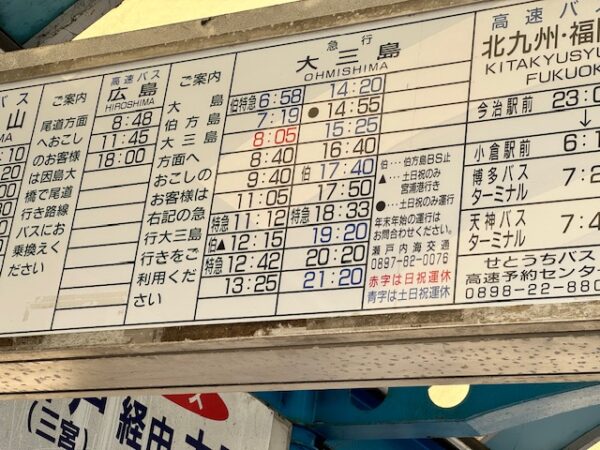 バス
山
MA
:10
:20
ご案内
尾道方面
へおこし
のお客様
は因島大
橋で尾道
行き路線
バスにお
乗換えく
ださい
高速バス
広島
HIROSHIMA
8:48
11:45
18:00
ご案内
大島
伯方島
大三島
方面へ
おこしの
お客様は
右記の急
行大三島
行きをご
利用くだ
さい
急行
大三島
OHMISHIMA
伯特急 6:58
7:19
8:05
8:40
9:40
11:05
特急 11:12
伯▲12:15
特急 12:42
13:25
14:20
●14:55
15:25
16:40
伯 17:40
17:50
特急 18:33
19:20
20:20
21:20
伯…伯方島BS止
▲…土日祝のみ
宮浦港行き
●…土日祝のみ運行
年末年始の運行は
お問合わせください。
瀬戸内海交通
0897-82-0076
赤字は日祝運休
青字は土日祝運休
高速バス
北九州・福
KITAKYUSYU
FUKUOK
今治駅前 23:0
↓
小倉駅前 6:1
博多バス
ターミナル 7:2
天神バス
ターミナル 7:4
せとうちバス
高速予約センター
0898-22-880
(三宮)
経由